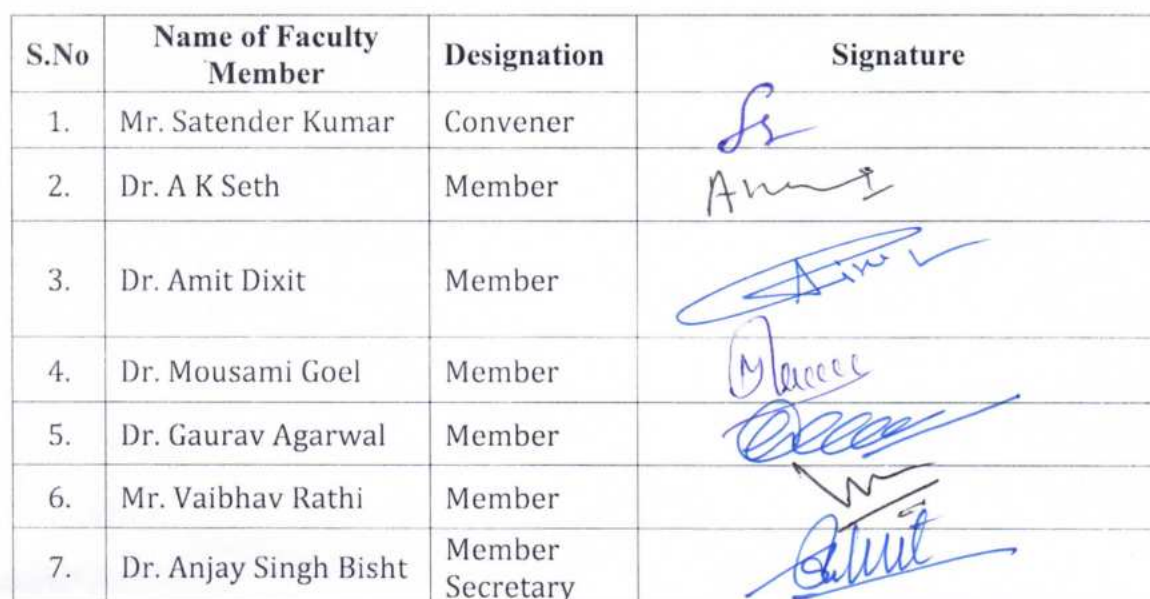 S.No Name of Faculty Member Designation Signature
1. Mr. Satender Kumar Convener
2. Dr. A K Seth Member
3. Dr. Amit Dixit Member
4. Dr. Mousami Goel Member
5. Dr. Gaurav Agarwal Member
6. Mr. Vaibhav Rathi Member
7. Dr. Anjay Singh Bisht Member Secretary